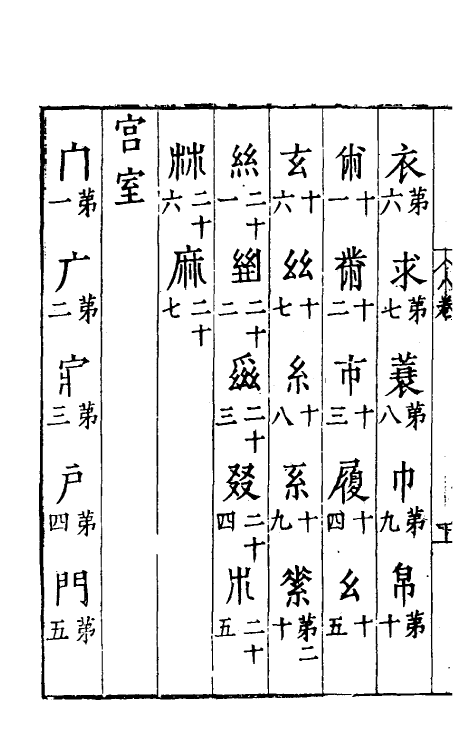 衣第六 求第七 蓑第八 巾第九 帛第十
術十一 黹十二 巿十三 履十四 幺十五
玄十六 𢆶十七 糸十八 系十九 縈第二十
絲二十一 二十二 二十三 叕二十四 𣎳二十五
𣏟二十六 麻二十七
宫室
冂第一 广第二 三第 戶第四 門第五